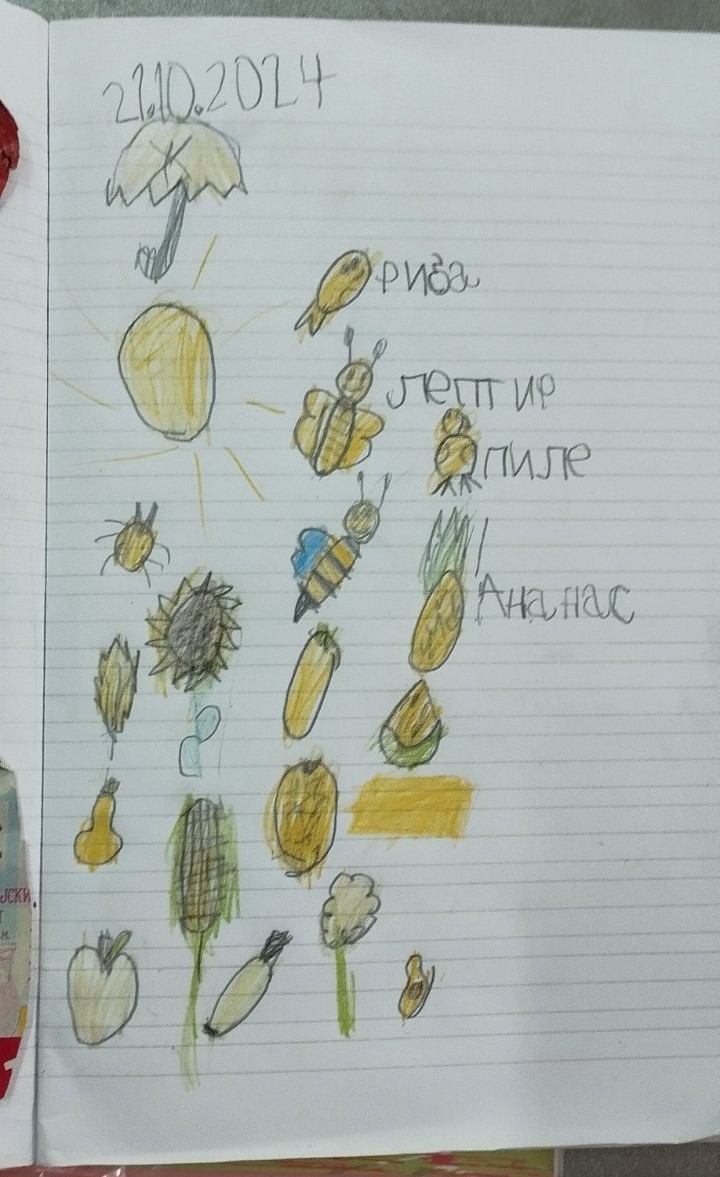 21.10.2024
риба
лептир
пиле
Ананас